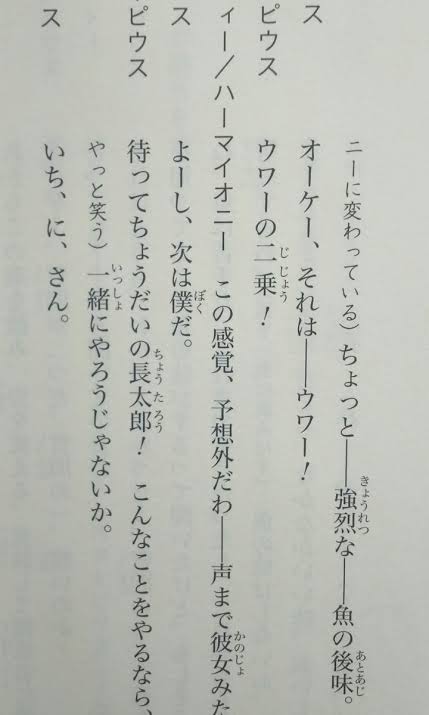 ニーに変わっている)ちょっと――強烈な――魚の後味。
ス　オーケー、それは――ウワー!
ピウス　ウワーの二乗!
ィー/ハーマイオニー　この感覚、予想外だわ――声まで彼女みた
ス　よーし、次は僕だ。
ピウス　待ってちょうだいの長太郎!　こんなことをやるなら、
やっと笑う)一緒にやろうじゃないか。
ス　いち、に、さん。